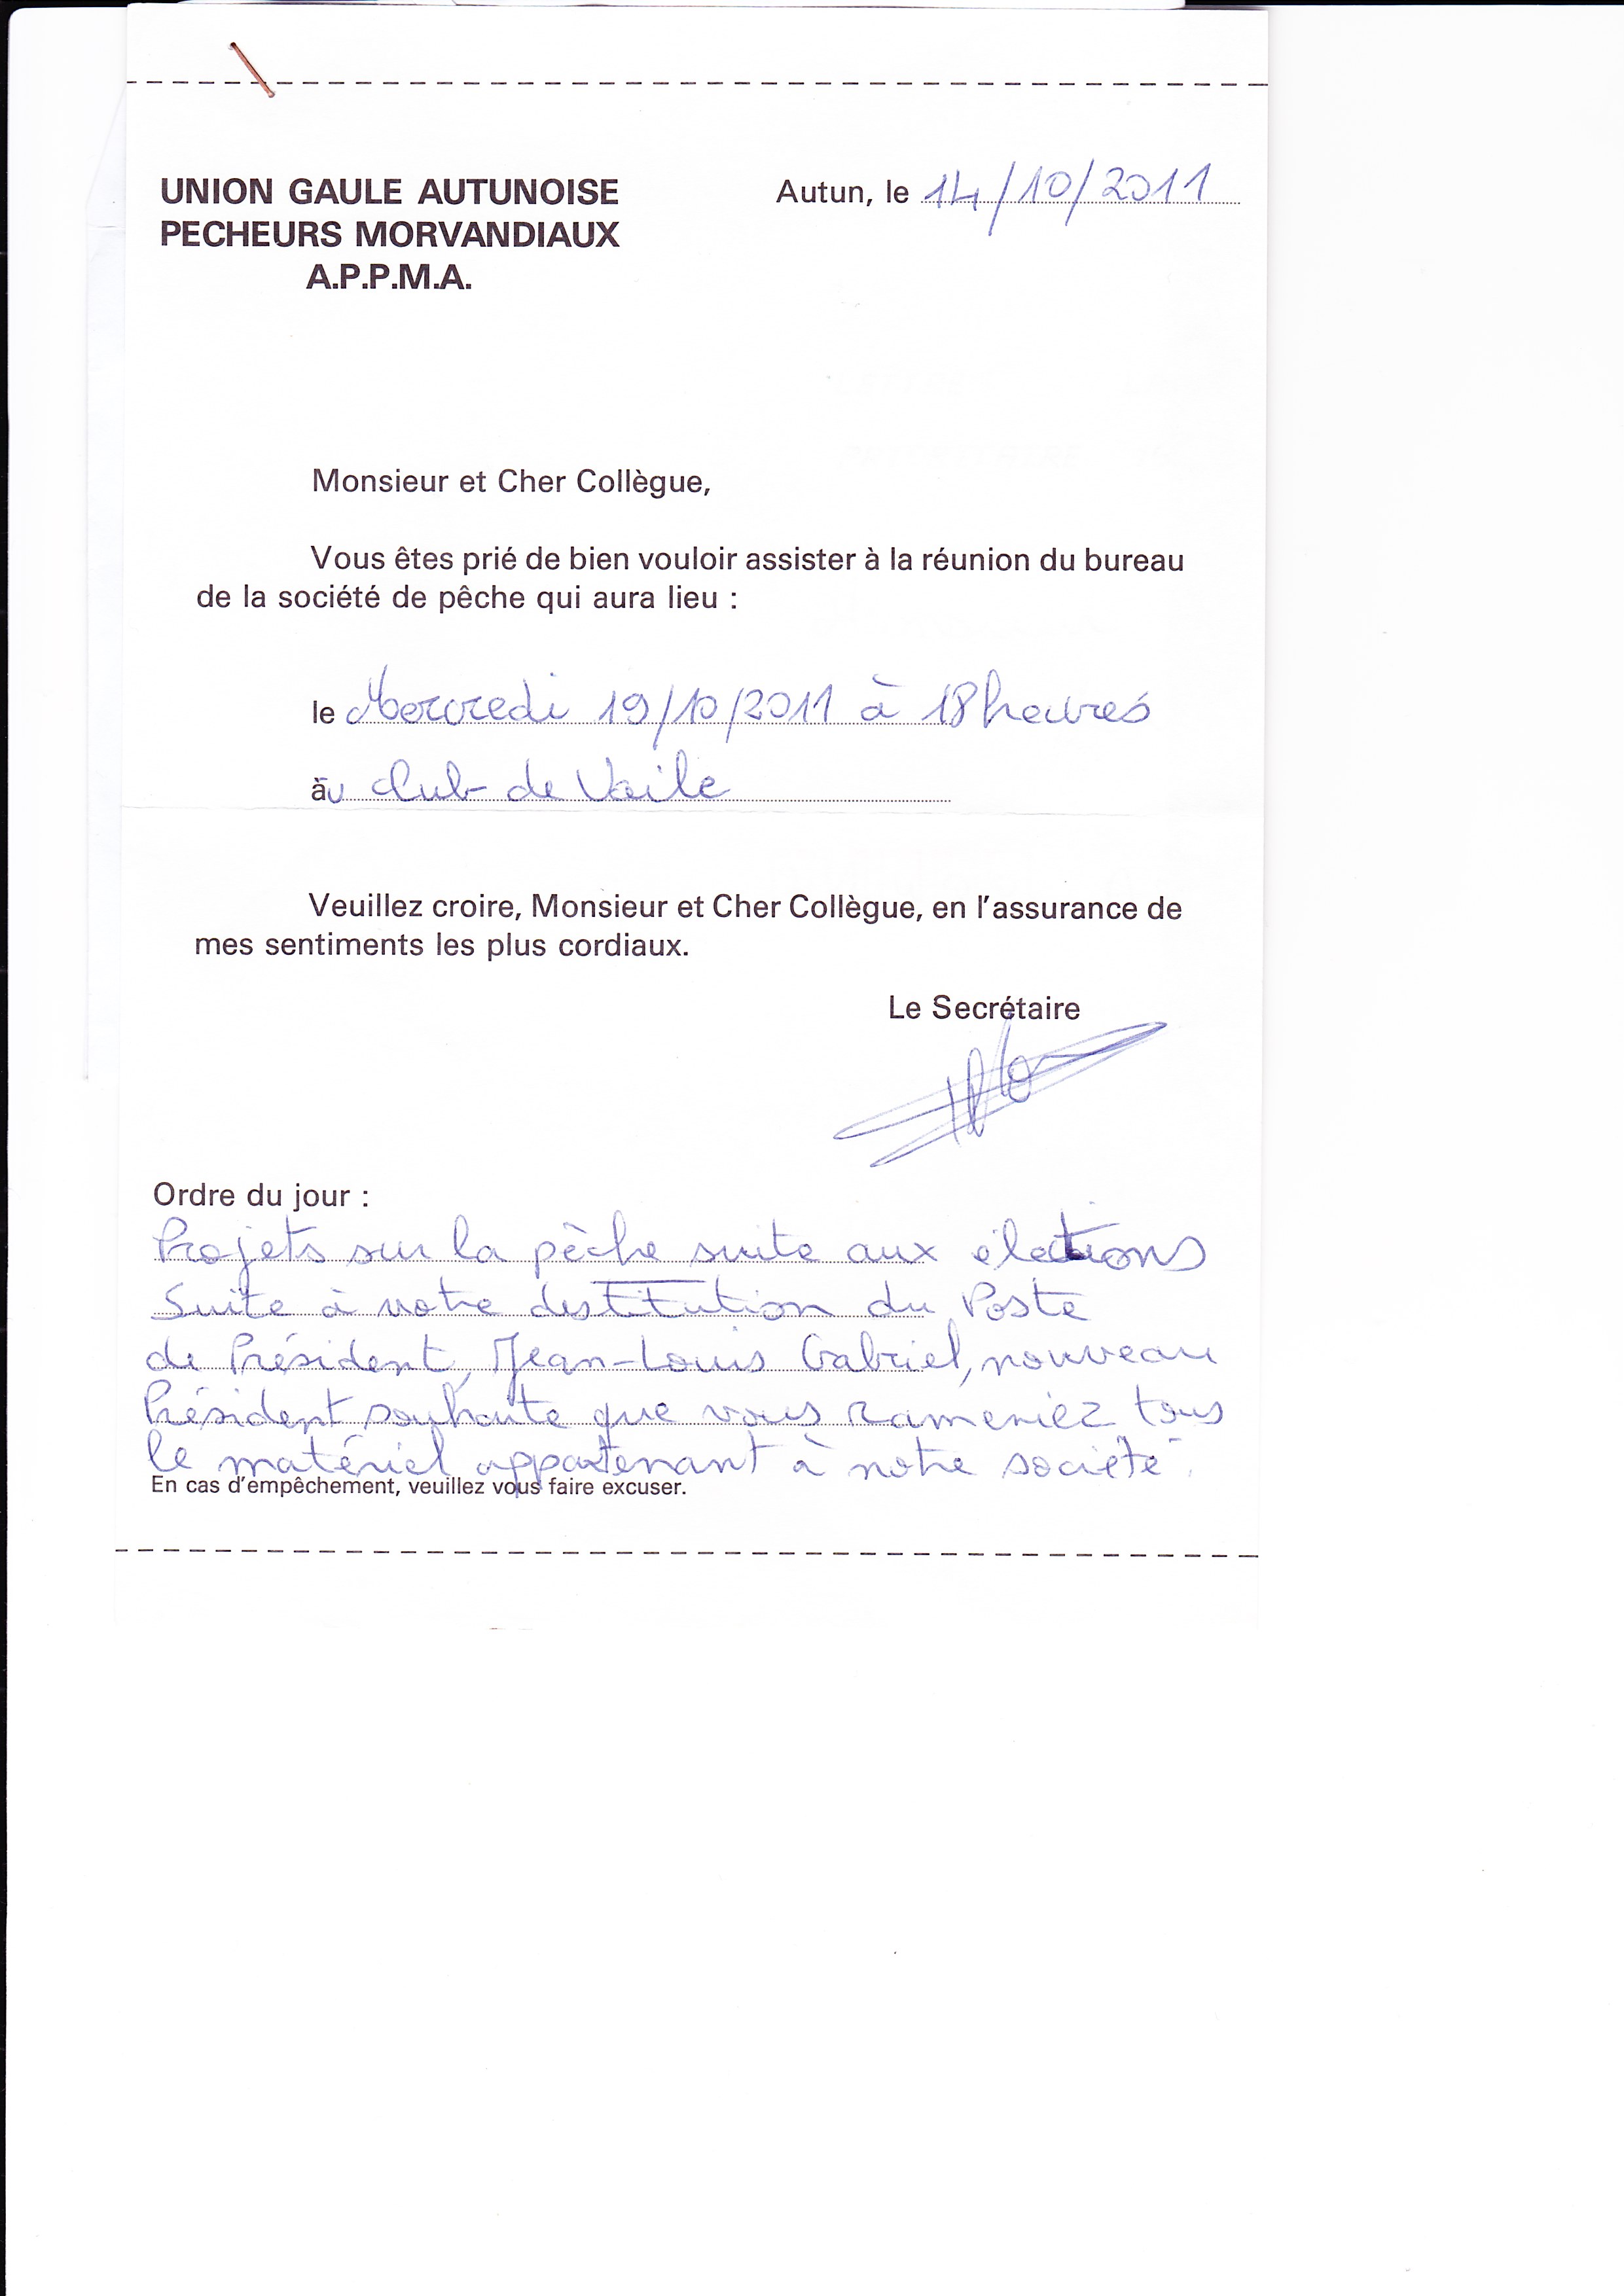 UNION GAULE AUTUNOISE
PECHEURS MORVANDIAUX
A.P.P.M.A.
Autun, le 14/10/2011
Monsieur et Cher Collègue,
Vous êtes prié de bien vouloir assister à la réunion du bureau
de la société de pêche qui aura lieu :
le Mercredi 19/10/2011 à 18 heures
au Club de Voile
Veuillez croire, Monsieur et Cher Collègue, en l'assurance de
mes sentiments les plus cordiaux.
Le Secrétaire
Ordre du jour :
Projets sur la pèche suite aux élections
Suite à votre destitution du Poste
de Président, Jean-Louis Gabriel, nouveau
Président souhaite que vous rameniez tous
le matériel appartenant à notre société.
En cas d'empêchement, veuillez vous faire excuser.